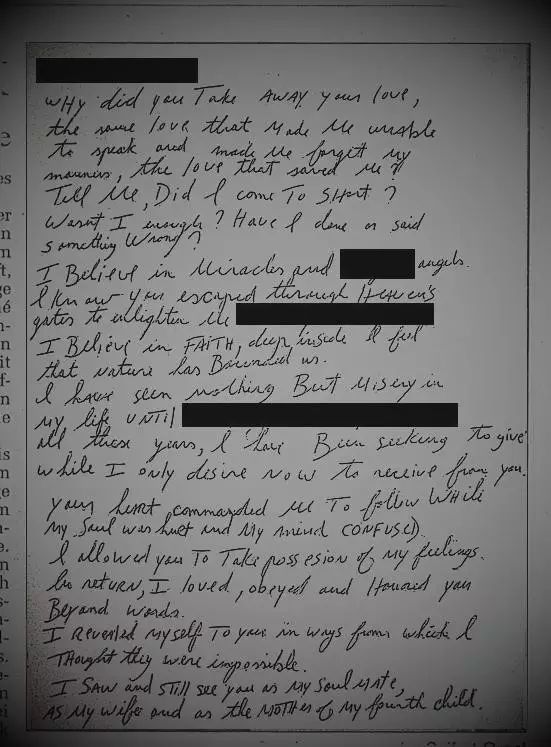 WHY did you Take AWAY your love,
the same love that Made Me unable
to speak and made Me forget my
manners, the love that saved Me?
Tell Me, Did I come To SHort?
Wasnt I enough? Have I done or said
something Wrong?
I Believe in Miracles and angels.
I know you escaped through Heaven's
gates to enlighten Me
I Believe in FAITH, deep inside I feel
that nature has us.
I have seen nothing But Misery in
my life UNTil
all these years, I have Been seeking to give
while I only desire now to receive from you.
your heart commanded Me To follow WHile
My Soul was hurt and My mind CONFUSED.
I allowed you To Take possesion of my feelings.
In return, I loved, obeyed and Honored you
Beyond words.
I revealed myself To you in ways from which I
THought they were impossible.
I SAW and STill see you as My Soul Mate,
AS My Wife and as the MOTHer of My fourth child.